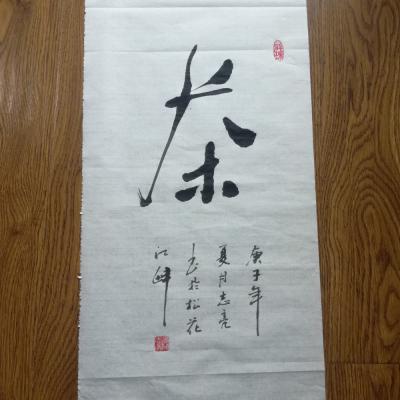 茶
庚子年
夏月志亮
书于松花
江畔